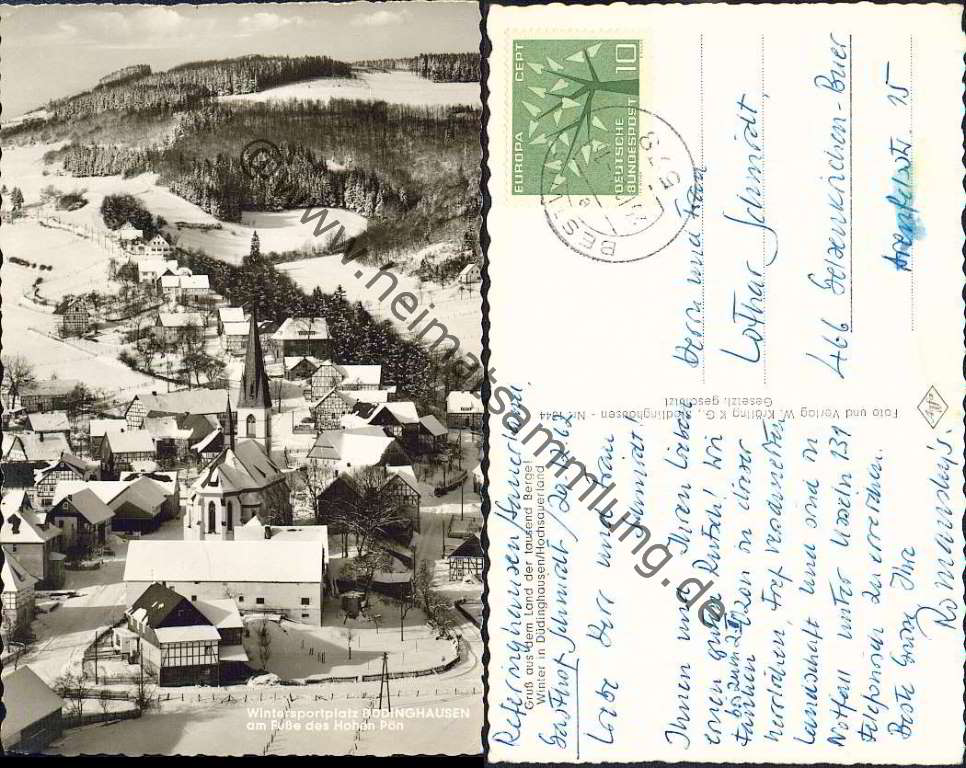 Wintersportplatz DÜDINGHAUSEN
am Fuße des Hohen Pön
© www.heimatsammlung.de
Referinghausen/Sauerland
Gruß aus dem Land der tausend Berge!
Winter in Düdinghausen/Hochsauerland
Gasthof
Liebe
und Frau
Schmidt!
Ihnen und Ihren Lieben
einen guten Rutsch! Wir
bis zum
in dieser
herrlichen, tief verschneiten
Landschaft und sind im
Notfall unter Usseln 239
telefonisch zu erreichen.
Beste Grüße Ihre
Romanski's
Foto und Verlag W. Kröling K G., Medebach - Nr.
Gesetzl. geschützt
EUROPA CEPT
10
DEUTSCHE
BUNDESPOST
Herrn und Frau
Lothar Schmidt
466 Gelsenkirchen-Buer
15